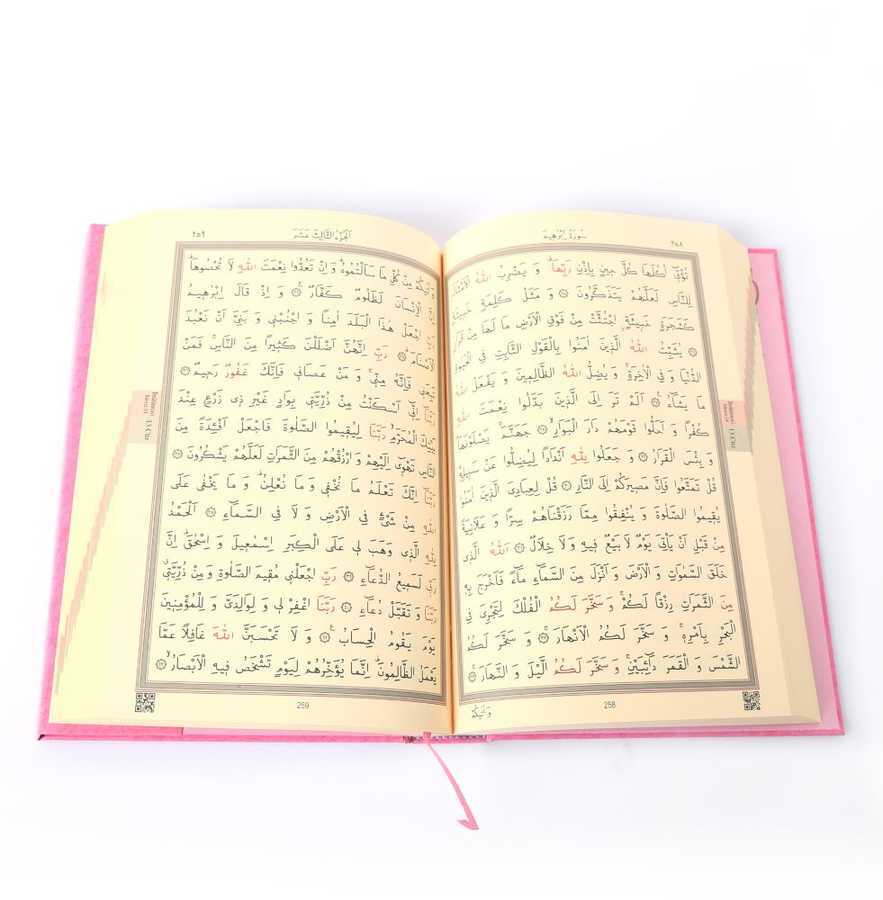 سورة إبرهيم
٢٥٨
تُؤْت۪ٓي اُكُلَهَا كُلَّ ح۪ينٍ بِاِذْنِ رَبِّهَاۜ وَ يَضْرِبُ اللّٰهُ الْاَمْثَالَ
لِلنَّاسِ لَعَلَّهُمْ يَتَذَكَّرُونَ ﴿٢٥﴾ وَ مَثَلُ كَلِمَةٍ خَب۪يثَةٍ
كَشَجَرَةٍ خَب۪يثَةٍۨ اجْتُثَّتْ مِنْ فَوْقِ الْاَرْضِ مَا لَهَا مِنْ قَرَارٍ
﴿٢٦﴾ يُثَبِّتُ اللّٰهُ الَّذ۪ينَ اٰمَنُوا بِالْقَوْلِ الثَّابِتِ فِي الْحَيٰوةِ
الدُّنْيَا وَ فِي الْاٰخِرَةِۚ وَ يُضِلُّ اللّٰهُ الظَّالِم۪ينَ وَ يَفْعَلُ اللّٰهُ
مَا يَشَٓاءُ۟ ﴿٢٧﴾ اَلَمْ تَرَ اِلَى الَّذ۪ينَ بَدَّلُوا نِعْمَتَ اللّٰهِ
كُفْرًا وَ اَحَلُّوا قَوْمَهُمْ دَارَ الْبَوَارِۙ ﴿٢٨﴾ جَهَنَّمَۚ يَصْلَوْنَهَاۜ
وَ بِئْسَ الْقَرَارُ ﴿٢٩﴾ وَ جَعَلُوا لِلّٰهِ اَنْدَادًا لِيُضِلُّوا عَنْ سَب۪يلِه۪ۜ
قُلْ تَمَتَّعُوا فَاِنَّ مَص۪يرَكُمْ اِلَى النَّارِ ﴿٣٠﴾ قُلْ لِعِبَادِيَ الَّذ۪ينَ اٰمَنُوا
يُق۪يمُوا الصَّلٰوةَ وَ يُنْفِقُوا مِمَّا رَزَقْنَاهُمْ سِرًّا وَ عَلَانِيَةً
مِنْ قَبْلِ اَنْ يَأْتِيَ يَوْمٌ لَا بَيْعٌ ف۪يهِ وَ لَا خِلَالٌ ﴿٣١﴾ اَللّٰهُ الَّذ۪ي
خَلَقَ السَّمٰوَاتِ وَ الْاَرْضَ وَ اَنْزَلَ مِنَ السَّمَٓاءِ مَٓاءً فَاَخْرَجَ بِه۪
مِنَ الثَّمَرَاتِ رِزْقًا لَكُمْۚ وَ سَخَّرَ لَكُمُ الْفُلْكَ لِتَجْرِيَ فِي
الْبَحْرِ بِاَمْرِه۪ۚ وَ سَخَّرَ لَكُمُ الْاَنْهَارَۚ ﴿٣٢﴾ وَ سَخَّرَ لَكُمُ
الشَّمْسَ وَ الْقَمَرَ دَٓائِبَيْنِۚ وَ سَخَّرَ لَكُمُ الَّيْلَ وَ النَّهَارَۚ ﴿٣٣﴾
258
وَاٰتٰيكُمْ
الجزء الثالث عشر
٢٥٩
وَ اٰتٰيكُمْ مِنْ كُلِّ مَا سَاَلْتُمُوهُۜ وَ اِنْ تَعُدُّوا نِعْمَتَ اللّٰهِ لَا تُحْصُوهَاۜ
اِنَّ الْاِنْسَانَ لَظَلُومٌ كَفَّارٌ۟ ﴿٣٤﴾ وَ اِذْ قَالَ اِبْرٰه۪يمُ
رَبِّ اجْعَلْ هٰذَا الْبَلَدَ اٰمِنًا وَ اجْنُبْن۪ي وَ بَنِيَّ اَنْ نَعْبُدَ
الْاَصْنَامَۜ ﴿٣٥﴾ رَبِّ اِنَّهُنَّ اَضْلَلْنَ كَث۪يرًا مِنَ النَّاسِۚ فَمَنْ
تَبِعَن۪ي فَاِنَّهُ مِنّ۪يۚ وَ مَنْ عَصَان۪ي فَاِنَّكَ غَفُورٌ رَح۪يمٌ ﴿٣٦﴾
رَبَّنَٓا اِنّ۪ٓي اَسْكَنْتُ مِنْ ذُرِّيَّت۪ي بِوَادٍ غَيْرِ ذ۪ي زَرْعٍ عِنْدَ
بَيْتِكَ الْمُحَرَّمِۙ رَبَّنَا لِيُق۪يمُوا الصَّلٰوةَ فَاجْعَلْ اَفْئِدَةً مِنَ
النَّاسِ تَهْو۪ٓي اِلَيْهِمْ وَ ارْزُقْهُمْ مِنَ الثَّمَرَاتِ لَعَلَّهُمْ يَشْكُرُونَ ﴿٣٧﴾
رَبَّنَٓا اِنَّكَ تَعْلَمُ مَا نُخْف۪ي وَ مَا نُعْلِنُۜ وَ مَا يَخْفٰى عَلَى
اللّٰهِ مِنْ شَيْءٍ فِي الْاَرْضِ وَ لَا فِي السَّمَٓاءِ ﴿٣٨﴾ اَلْحَمْدُ
لِلّٰهِ الَّذ۪ي وَهَبَ ل۪ي عَلَى الْكِبَرِ اِسْمٰع۪يلَ وَ اِسْحٰقَۜ اِنَّ
رَبّ۪ي لَسَم۪يعُ الدُّعَٓاءِ ﴿٣٩﴾ رَبِّ اجْعَلْن۪ي مُق۪يمَ الصَّلٰوةِ وَ مِنْ ذُرِّيَّت۪يۗ
رَبَّنَا وَ تَقَبَّلْ دُعَٓاءِ ﴿٤٠﴾ رَبَّنَا اغْفِرْ ل۪ي وَ لِوَالِدَيَّ وَ لِلْمُؤْمِن۪ينَ
يَوْمَ يَقُومُ الْحِسَابُ۟ ﴿٤١﴾ وَ لَا تَحْسَبَنَّ اللّٰهَ غَافِلًا عَمَّا
يَعْمَلُ الظَّالِمُونَۜ اِنَّمَا يُؤَخِّرُهُمْ لِيَوْمٍ تَشْخَصُ ف۪يهِ الْاَبْصَارُۙ ﴿٤٢﴾
259